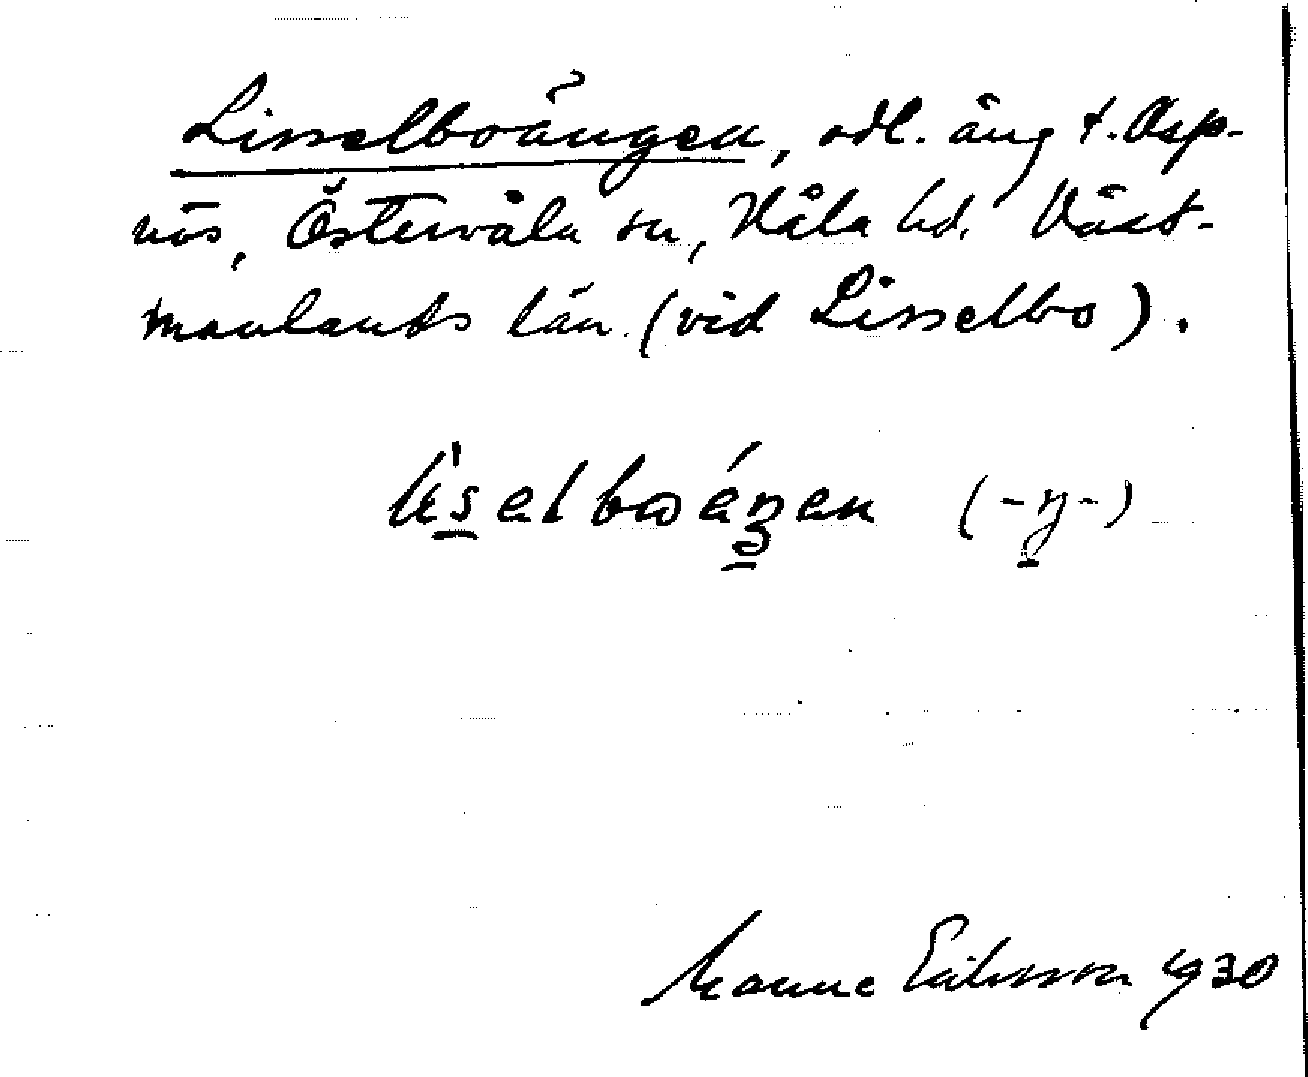 Lisselboängen, odl. äng t. Asp-
näs, Östervåla sn, Våla hd. Väst-
manlands län (vid Lisselbo).
(-ŋ-)
Manne Eriksson 1930